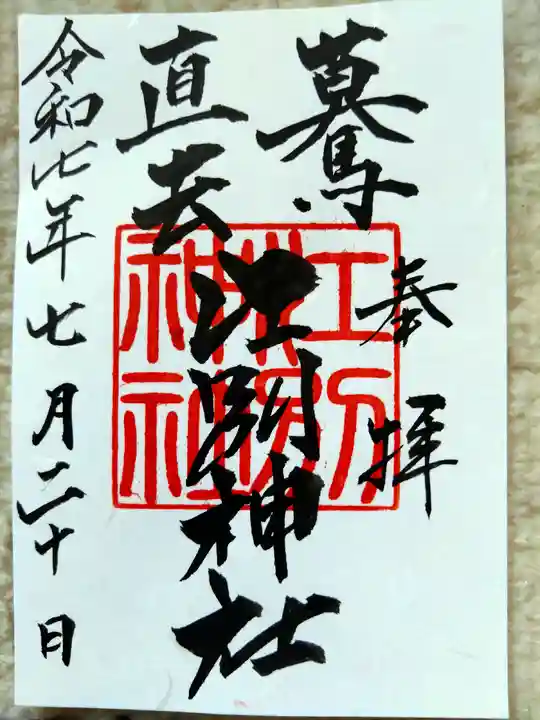 奉拝
驀
直去
江別神社
江別神社
令和七年七月二十日